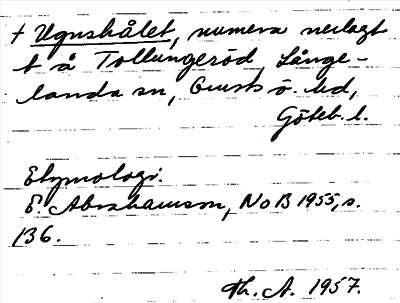 † Ugnshålet, numera nerlagt
t å Tollungeröd, Långe-
landa sn, Orusts ö. hd,
Göteb. l.
Etymologi.
E. Abrahamson, NoB 1955, s.
136.
Th. A. 1957.